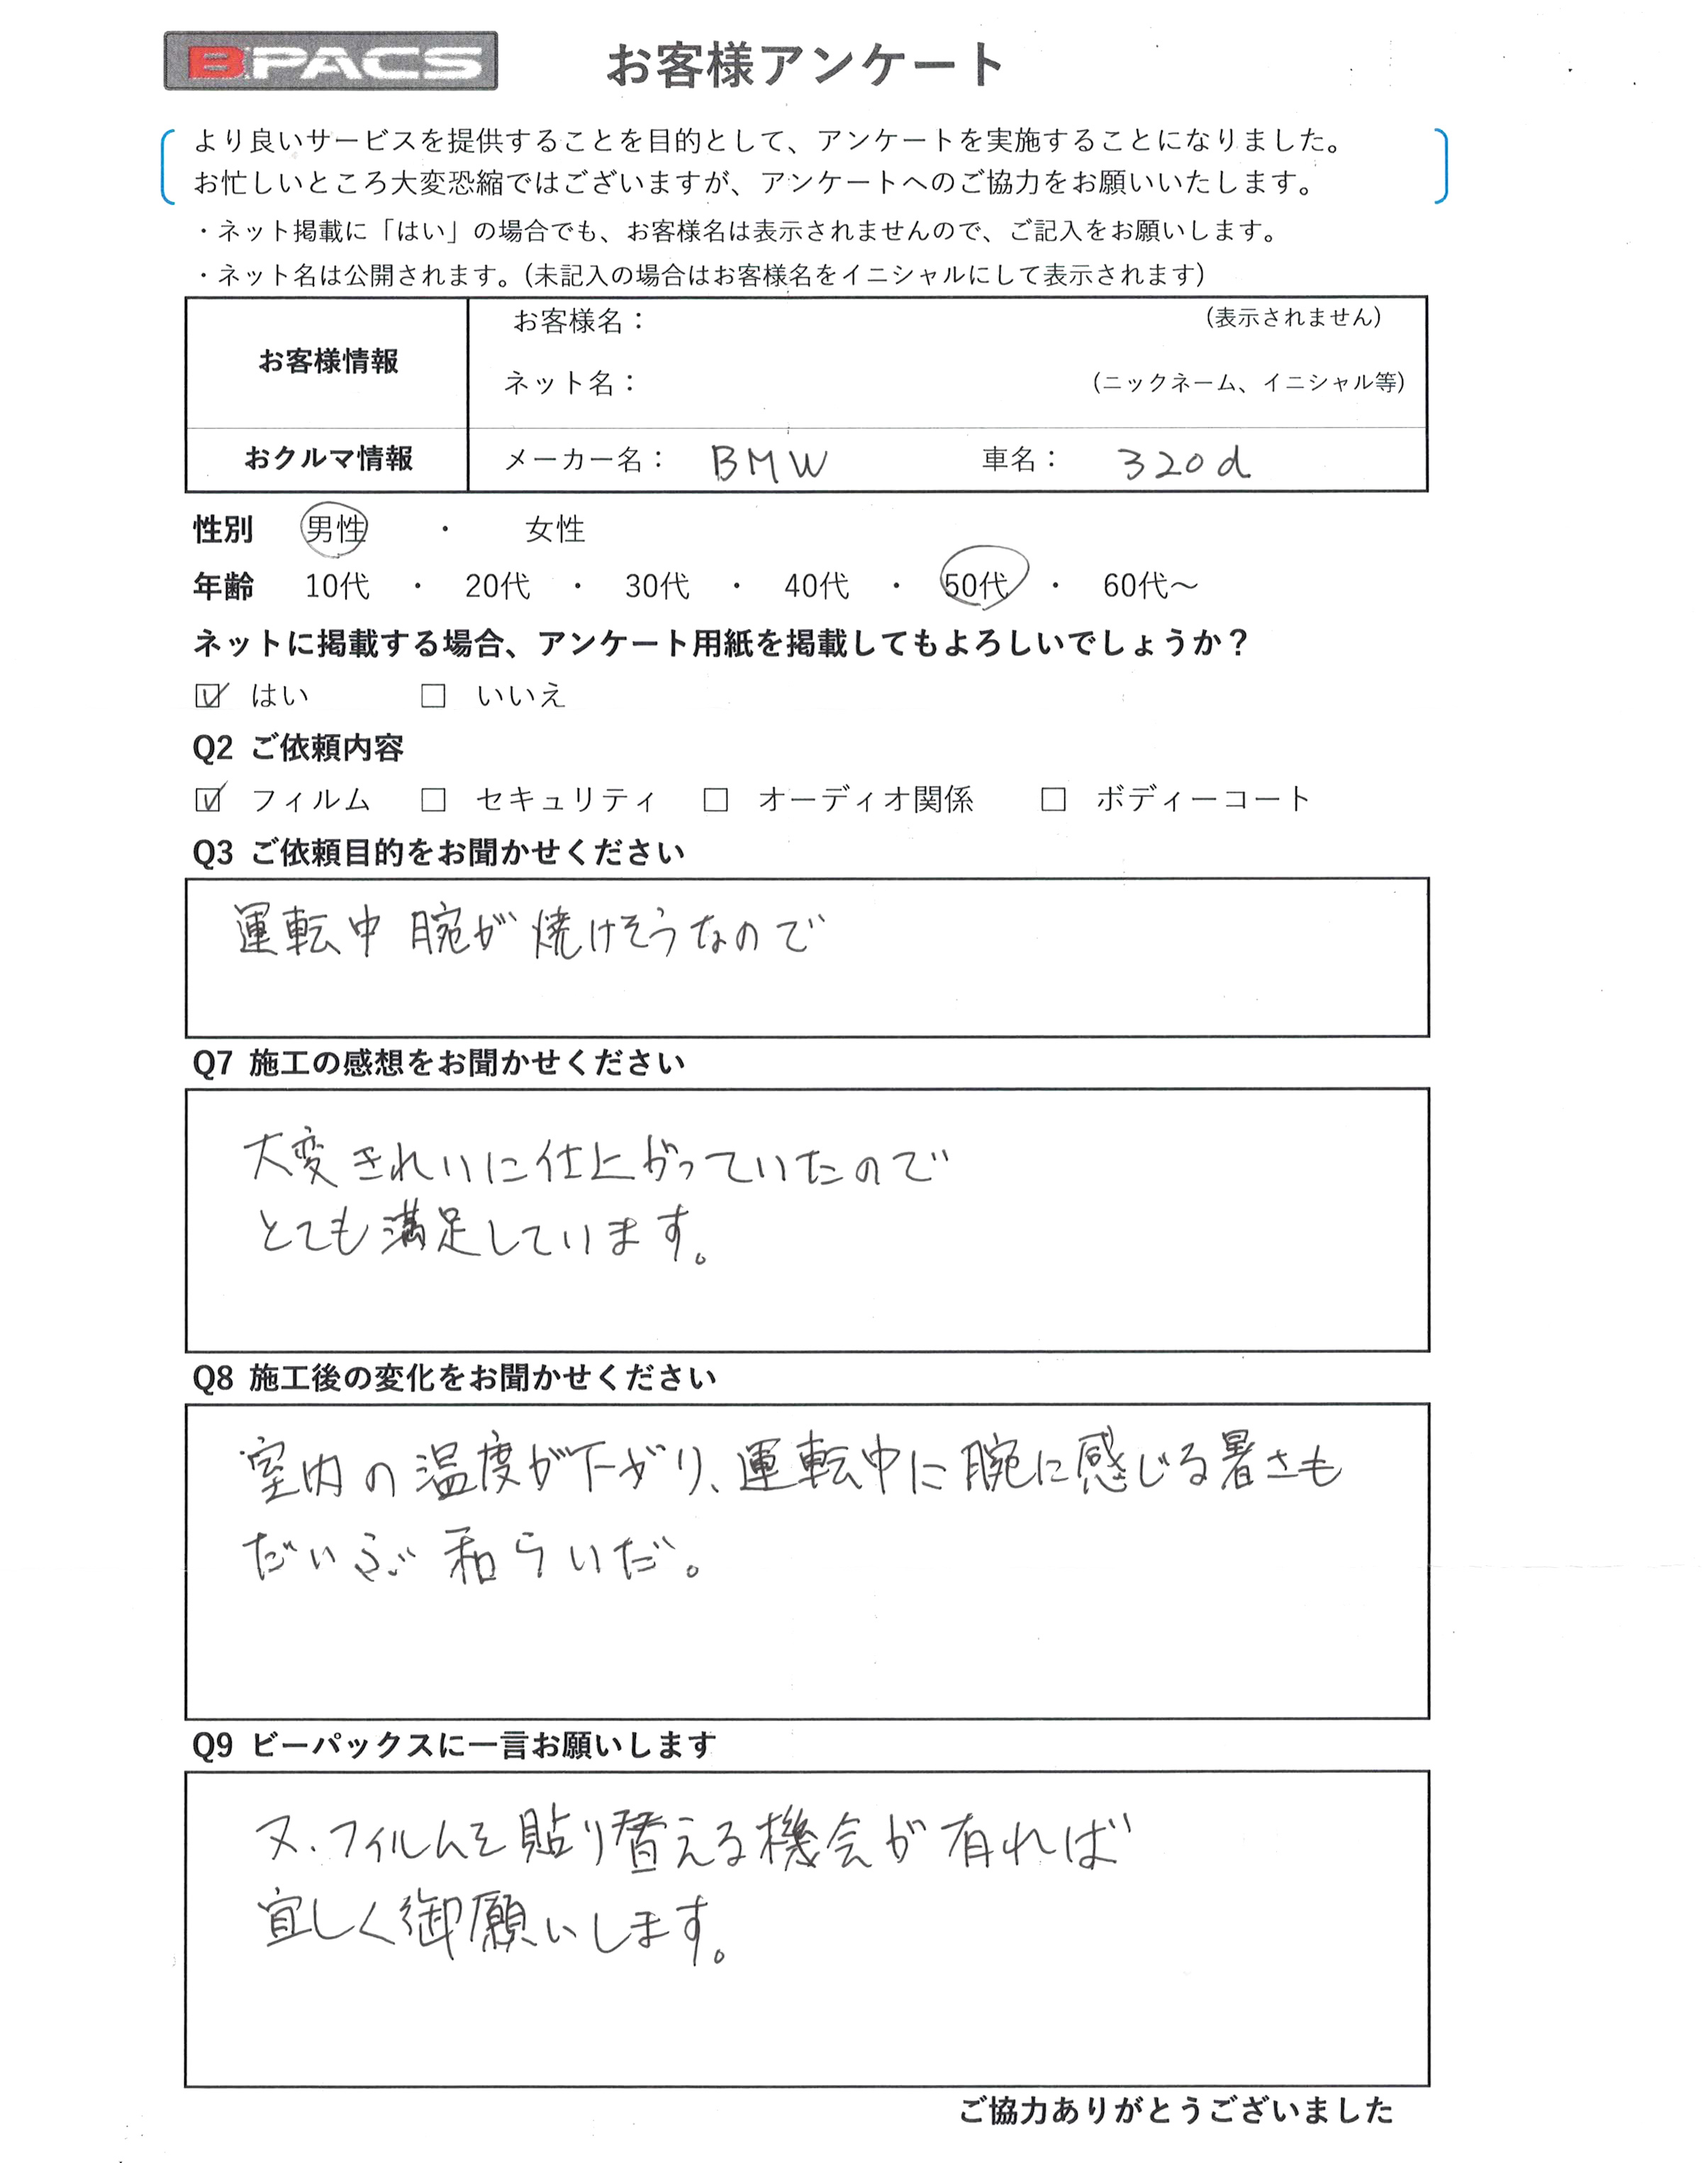 B-PACS お客様アンケート
より良いサービスを提供することを目的として、アンケートを実施することになりました。
お忙しいところ大変恐縮ではございますが、アンケートへのご協力をお願いいたします。
・ネット掲載に「はい」の場合でも、お客様名は表示されませんので、ご記入をお願いします。
・ネット名は公開されます。（未記入の場合はお客様名をイニシャルにして表示されます）
お客様情報 お客様名： （表示されません）
ネット名： （ニックネーム、イニシャル等）
おクルマ情報 メーカー名： BMW 車名： 320d
性別 男性 ・ 女性
年齢 10代 ・ 20代 ・ 30代 ・ 40代 ・ 50代 ・ 60代～
ネットに掲載する場合、アンケート用紙を掲載してもよろしいでしょうか？
☑ はい □ いいえ
Q2 ご依頼内容
☑ フィルム □ セキュリティ □ オーディオ関係 □ ボディーコート
Q3 ご依頼目的をお聞かせください
運転中腕が焼けそうなので
Q7 施工の感想をお聞かせください
大変きれいに仕上がっていたので
とても満足しています。
Q8 施工後の変化をお聞かせください
室内の温度が下がり、運転中に腕に感じる暑さも
だいぶ和らいだ。
Q9 ビーパックスに一言お願いします
又、フィルムを貼り替える機会が有れば
宜しく御願いします。
ご協力ありがとうございました